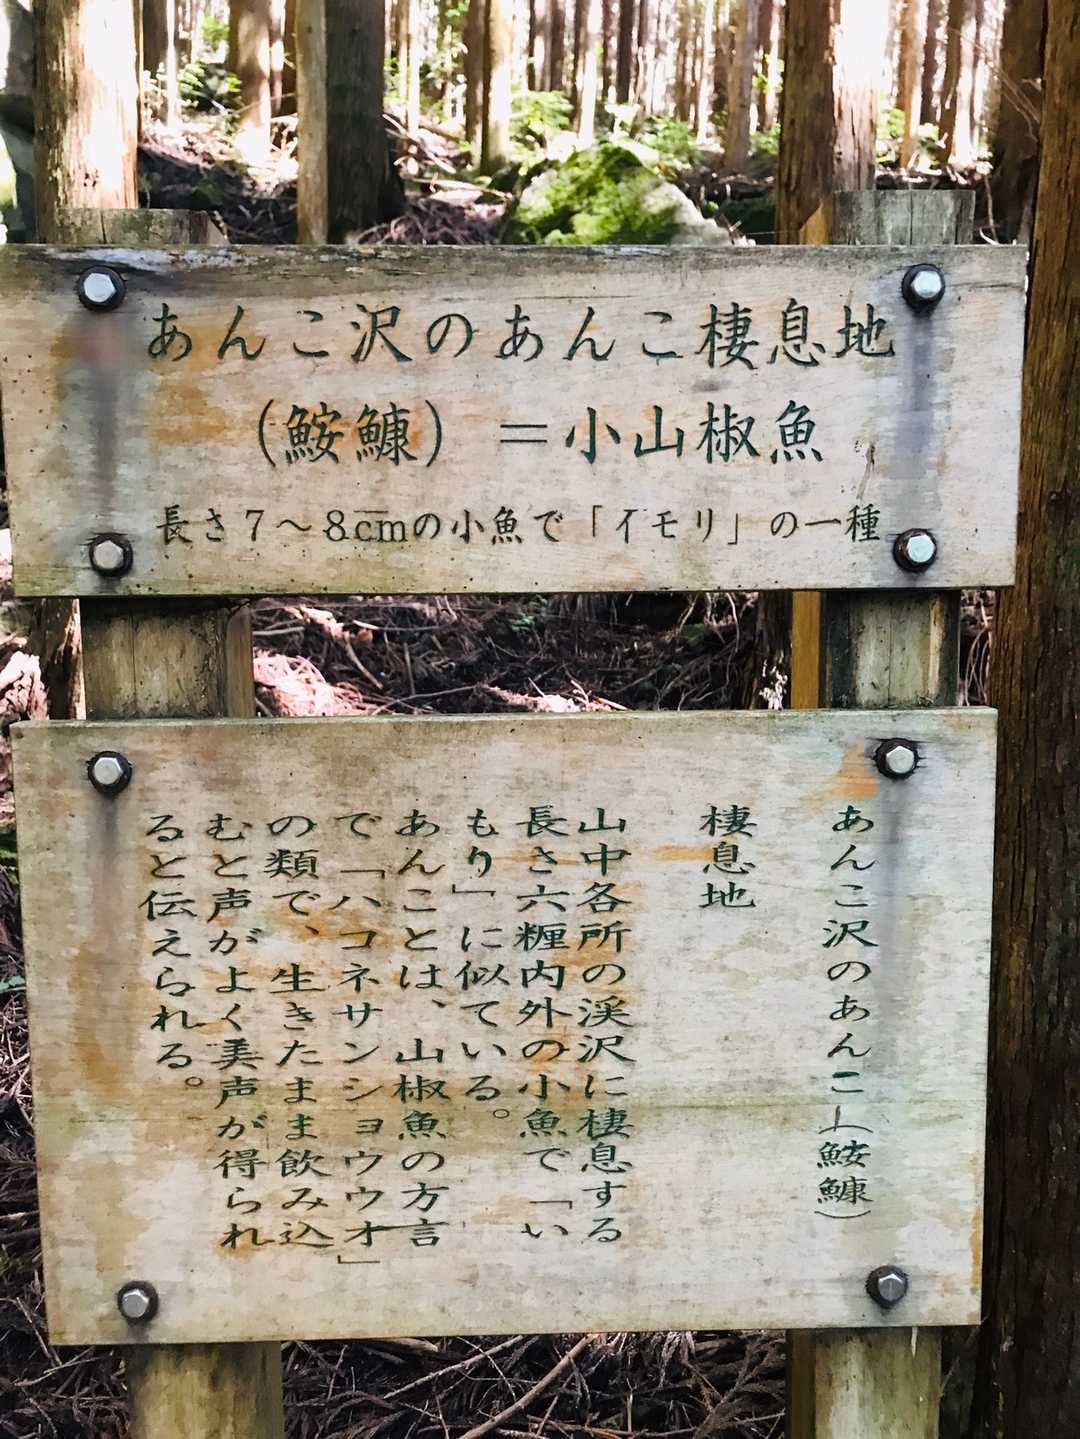 あんこ沢のあんこ棲息地
(鮟鱇)＝小山椒魚
長さ7～8cmの小魚で「イモリ」の一種
あんこ沢のあんこ(鮟鱇)
棲息地
山中各所の渓沢に棲息する
長さ六糎内外の小魚で「い
もり」に似ている。
あんことは、山椒魚の方言
で「ハコネサンショウウオ」
の類で、生きたまま飲み込
むと声がよく美声が得られ
ると伝えられる。